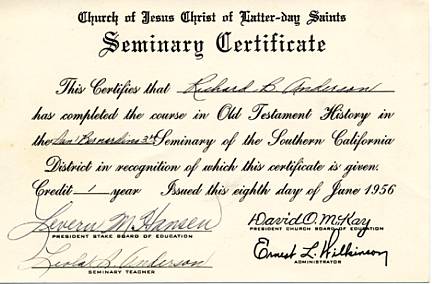 Church of Jesus Christ of Latter-day Saints
Seminary Certificate
This Certifies that Richard B Anderson
has completed the course in Old Testament History in
the San Bernardino 3rd Seminary of the Southern California
District in recognition of which this certificate is given.
Credit 1 year Issued this eighth day of June 1956
Severn M Hansen David O. McKay
PRESIDENT STAKE BOARD OF EDUCATION PRESIDENT CHURCH BOARD OF EDUCATION
Anderson Ernest L. Wilkinson
SEMINARY TEACHER ADMINISTRATOR